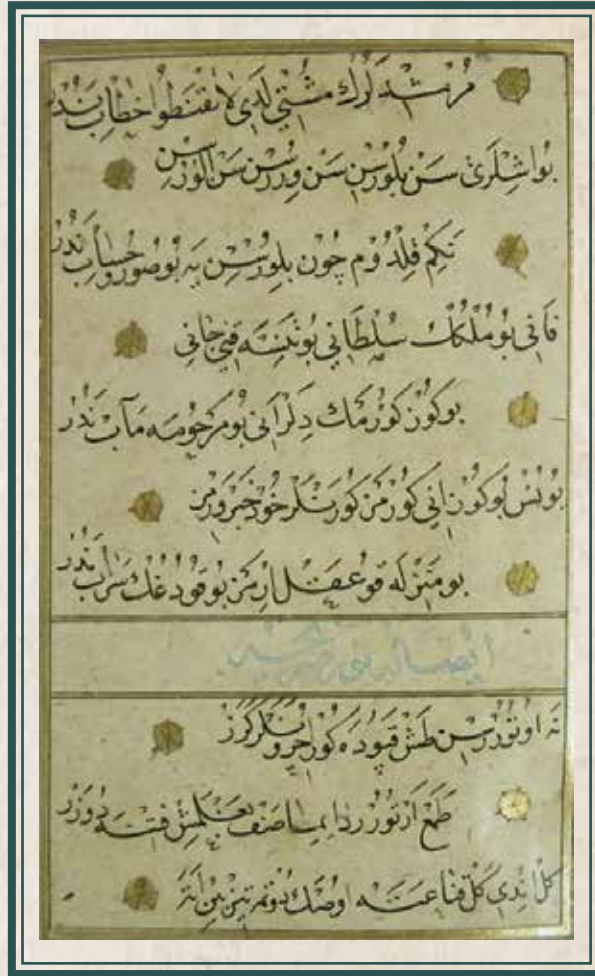 مرشدلرك مشتى لدى لا تقنطوا خطاب ندر
بو اشلرى سن بلورسن سن ويررسن سن الورسن
نكم قلدوم چون بلورسن يه بو صور و حساب ندر
قانى بو ملكك سلطانى بو تنسه قنى جانى
بو كوز كورمك دلر انى بو مرجومه مآب ندر
يونس بو كوز انى كورمز كورنلر خود خبر ورمز
بو منزله قو عقل ارمز بو قودوغك سراب ندر
ايضا له نور
نه اوتوررسن طش قپوده كور ايچرو نلر كزر
طمع ارتورر دايما صنف بغلمش فتنه دوزر
كل ايندى كل قناعته اوصلك دوته تيز بين اته